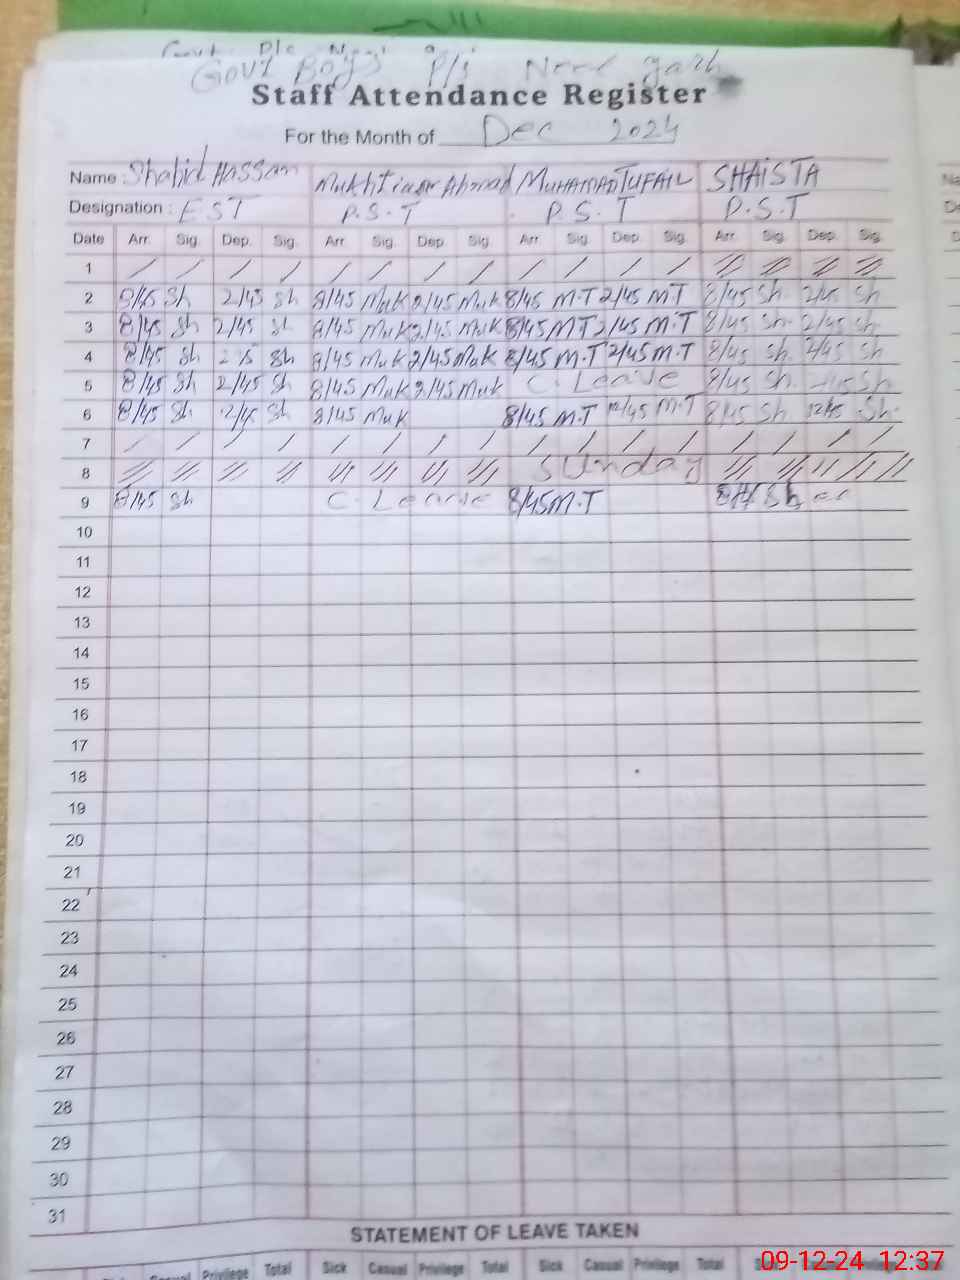 Govt Boys P/s Neel garh
Staff Attendance Register
For the Month of Dec 2024
Name : Shahid Hassan Mukhtiaar Ahmad MUHAMADTUFAIL SHAISTA
Designation : EST P.S.T P.S.T P.S.T
Date Arr. Sig. Dep. Sig. Arr. Sig. Dep. Sig. Arr. Sig. Dep. Sig. Arr. Sig. Dep. Sig.
1 / / / / / / / / / / / / // // // //
2 8/45 Sh 2/45 Sh 8/45 Muk 2/45 Muk 8/45 M.T 2/45 MT 8/45 Sh. 2/45 Sh
3 8/45 Sh 2/45 Sh 8/45 Muk 2/45 Muk 8/45 MT 2/45 M.T 8/45 Sh. 2/45 Sh
4 8/45 Sh Sh 8/45 Muk 2/45 Muk 8/45 M.T 2/45 M.T 8/45 Sh. 2/45 Sh
5 8/45 Sh 2/45 Sh 8/45 Muk 2/45 Muk C. Leave 8/45 Sh. Sh
6 8/45 Sh 12/45 Sh 8/45 Muk 8/45 M.T 12/45 M.T 8/45 Sh. 12/45 Sh.
7 / / / / / / / / / / / / / / / /
8 // // // // // // // // Sunday // // // //
9 8/45 Sh C. Leave 8/45 M.T Sh
10
11
12
13
14
15
16
17
18
19
20
21
22
23
24
25
26
27
28
29
30
31
STATEMENT OF LEAVE TAKEN
Casual Privilege Total Sick Casual Privilege Total Sick Casual Privilege Total Sick
09-12-24 12:37